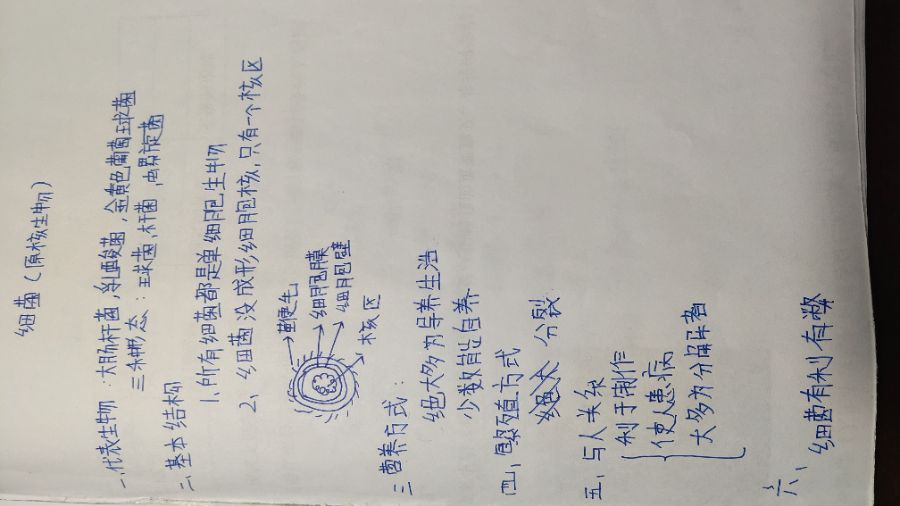 细菌（原核生物）
一、代表生物：大肠杆菌，乳酸菌，金黄色葡萄球菌
三种形态：球菌，杆菌，螺旋菌
二、基本结构
1、所有细菌都是单细胞生物
2、细菌没成形细胞核，只有一个核区
细胞膜
细胞壁
核区
三 营养方式：
绝大多为异养生活
少数能自养
四、繁殖方式
分裂
五、与人关系
利于制作
使人患病
大多为分解者
六、
细菌有利有弊